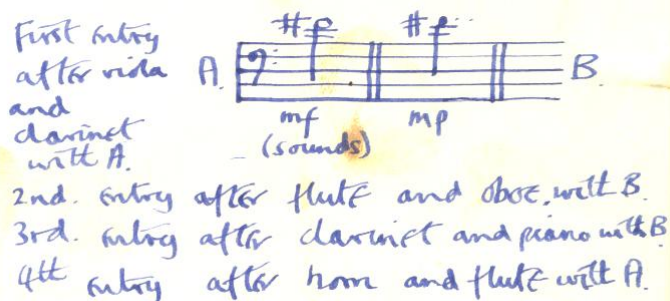 First entry
after viola
and
clarinet
with A.
A. B.
mf mp
(sounds)
2nd. entry after flute and oboe, with B.
3rd. entry after clarinet and piano with B
4th entry after horn and flute with A.